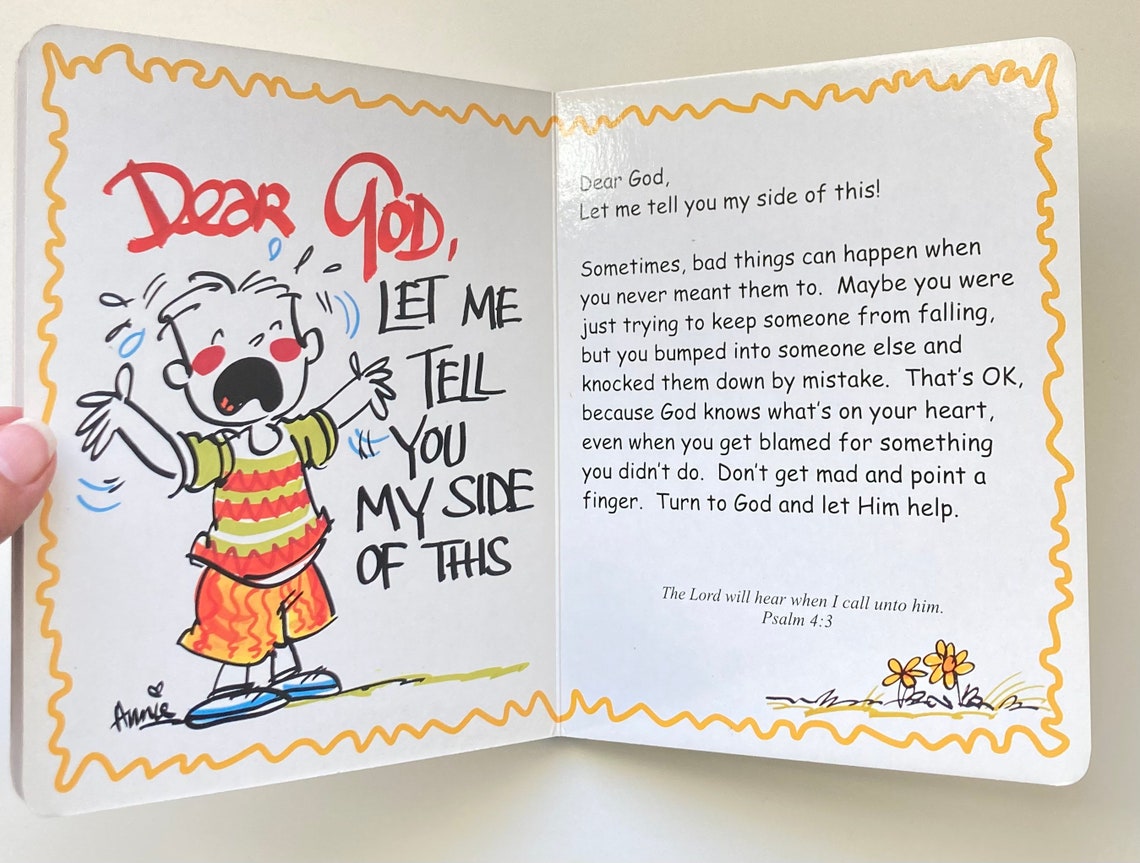 Dear God,
LET ME
TELL
YOU
MY SIDE
OF THIS
Annie
Dear God,
Let me tell you my side of this!
Sometimes, bad things can happen when
you never meant them to. Maybe you were
just trying to keep someone from falling,
but you bumped into someone else and
knocked them down by mistake. That's OK,
because God knows what's on your heart,
even when you get blamed for something
you didn't do. Don't get mad and point a
finger. Turn to God and let Him help.
The Lord will hear when I call unto him.
Psalm 4:3